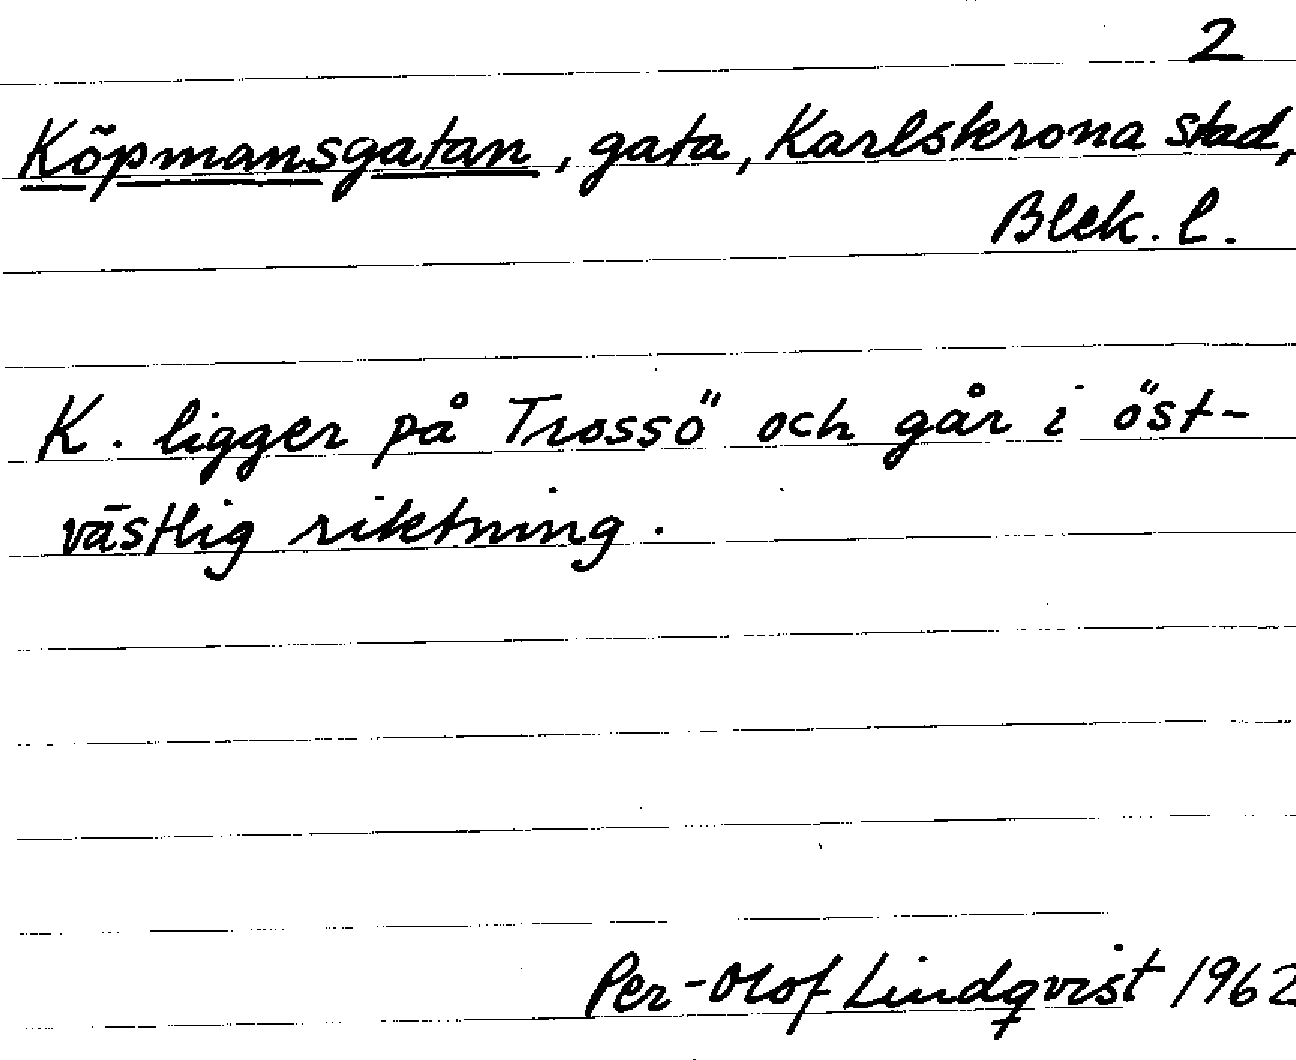 2
Köpmansgatan, gata, Karlskrona stad,
Blek. l.
K. ligger på Trossö och går i öst-
västlig riktning.
Per-Olof Lindqvist 1962